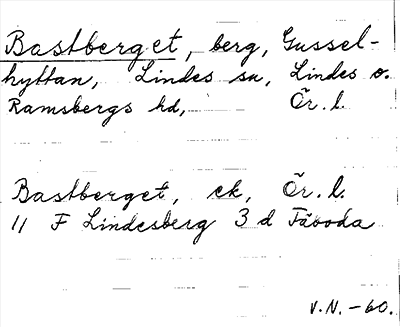 Bastberget, berg, Gussel-
hyttan, Lindes sn, Lindes o.
Ramsbergs hd, Ör. l.
Bastberget, ek, Ör. l.
11 F Lindesberg 3 d Fåboda
V.N. -60.